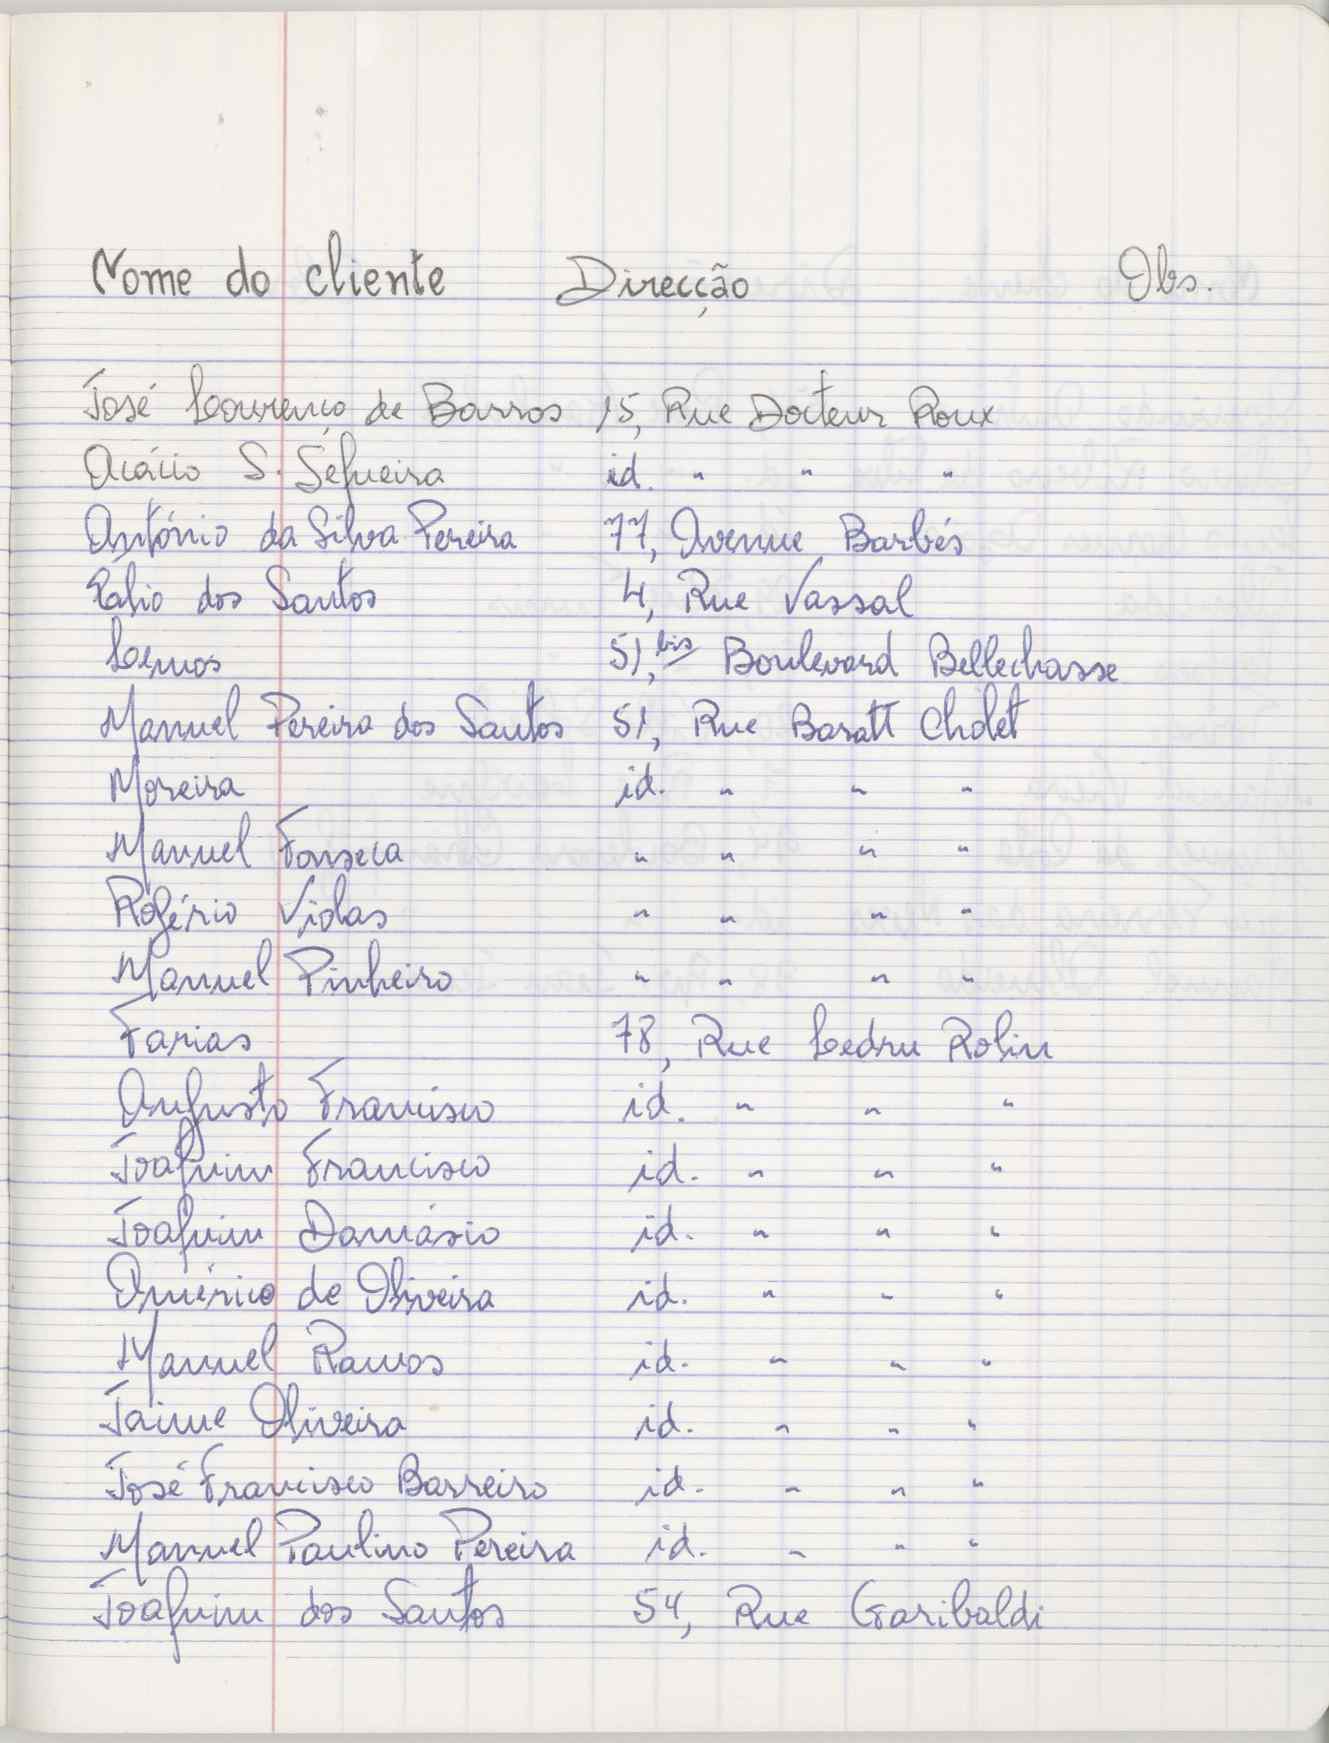 Nome do cliente Direcção Obs.
José Lourenço de Barros 15, Rue Docteur Roux
Acácio S. Sequeira id. " " "
António da Silva Pereira 77, Avenue Barbés
Pálio dos Santos 4, Rue Vassal
Lemos 51, bis Boulevard Bellechasse
Manuel Pereira dos Santos 51, Rue Baratt Cholet
Moreira id. " " "
Manuel Fonseca " " " "
Rogério Violas " " " "
Manuel Pinheiro " " " "
Farias 78, Rue Ledru Rolin
Augusto Francisco id. " " "
Joaquim Francisco id. " " "
Joaquim Damásio id. " " "
Américo de Oliveira id. " " "
Manuel Ramos id. " " "
Jaime Oliveira id. " " "
José Francisco Barreiro id. " " "
Manuel Paulino Pereira id. " " "
Joaquim dos Santos 54, Rue Garibaldi